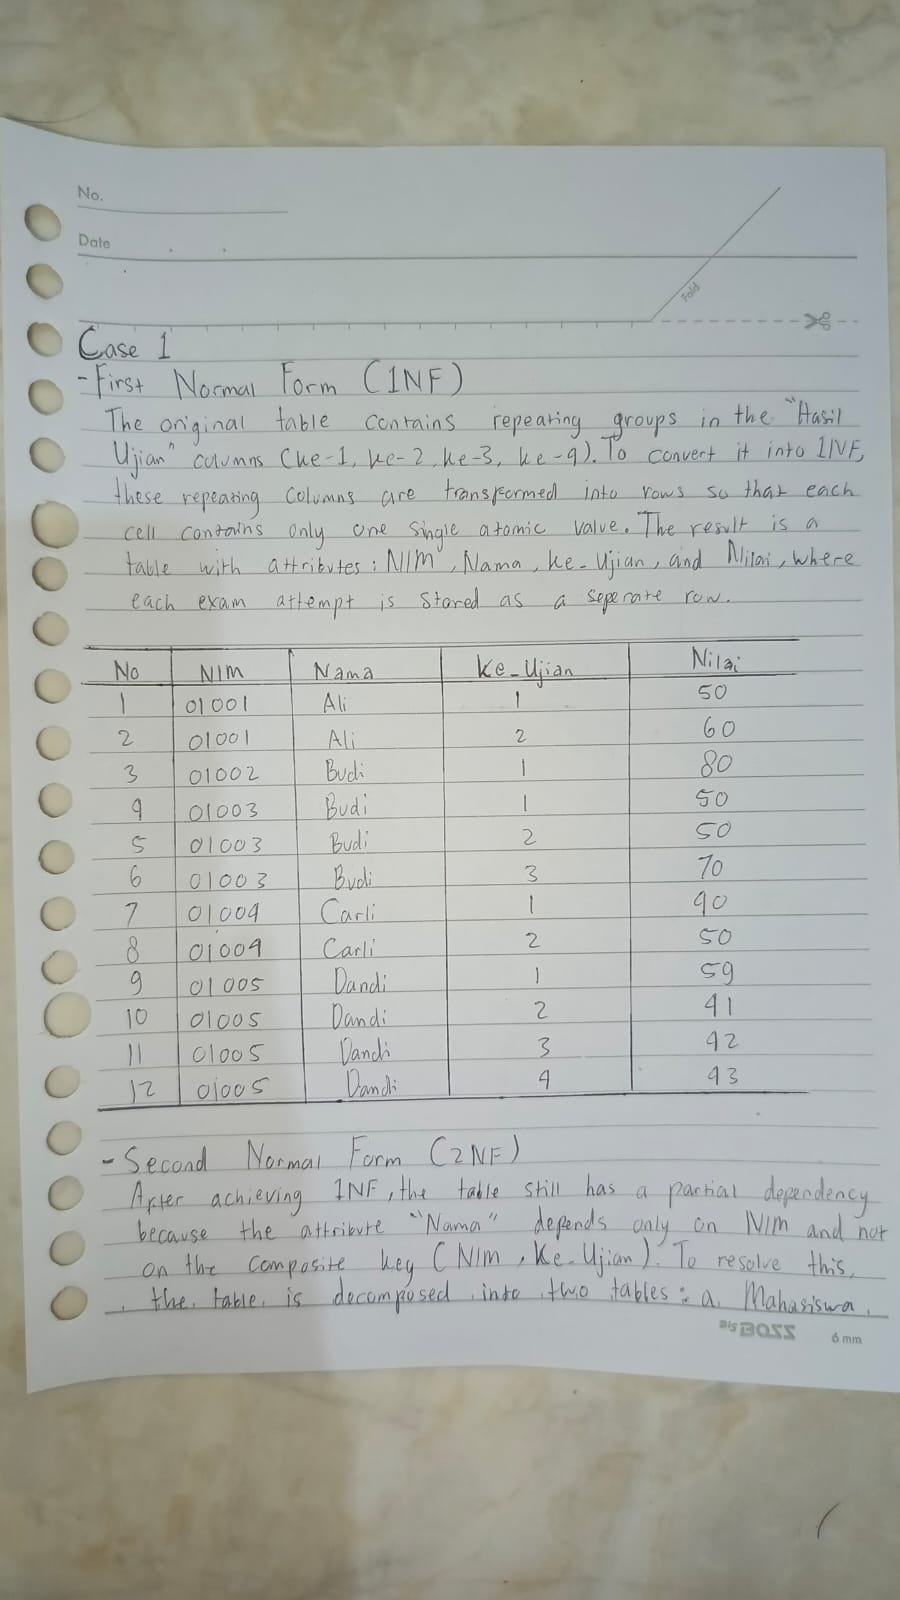 No.
Date
Fold
Case 1
- First Normal Form (1NF)
The original table contains repeating groups in the "Hasil
Ujian" columns (ke-1, ke-2, ke-3, ke-4). To convert it into 1NF,
these repeating columns are transformed into rows so that each
cell contains only one single atomic value. The result is a
table with attributes : NIM, Nama, ke_Ujian, and Nilai, where
each exam attempt is stored as a seperate row.
No NIM Nama Ke_Ujian Nilai
1 01001 Ali 1 50
2 01001 Ali 2 60
3 01002 Budi 1 80
4 01003 Budi 1 50
5 01003 Budi 2 50
6 01003 Budi 3 70
7 01004 Carli 1 40
8 01004 Carli 2 50
9 01005 Dandi 1 59
10 01005 Dandi 2 41
11 01005 Dandi 3 42
12 01005 Dandi 4 43
- Second Normal Form (2NF)
After achieving 1NF, the table still has a partial dependency
because the attribute "Nama" depends only on NIM and not
on the composite key (NIM, Ke_Ujian). To resolve this,
the table is decomposed into two tables : a. Mahasiswa
Big BOSS 6 mm